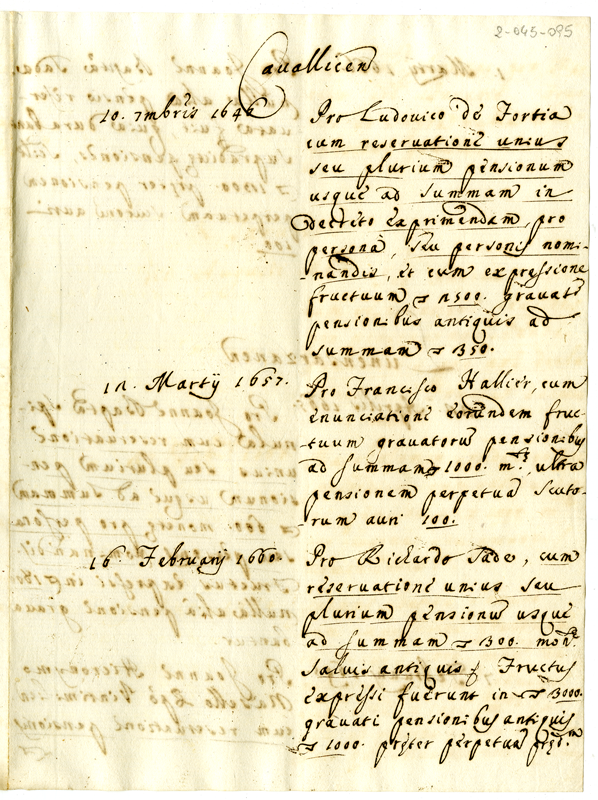 2-045-095
Cavallicen
10. 7mbris 1646
Pro Ludovico de Fortia
cum reservatione unius
seu plurium pensionum
usque ad summam in
decreto exprimendam, pro
persona, seu personis nomi-
-nandis, et cum expressione
fructuum 2500. gravat.
pensionibus antiquis ad
summam 350.
12. Martij 1657.
Pro Francisco Hallier, cum
enunciatione eorundem fruc-
-tuum gravatorum pensionibus
ad summam 1000. m.ta, ultra
pensionem perpetua scuto-
-rum auri 100.
16. Februarij 1660.
Pro Richardo Sade, cum
reservatione unius seu
plurium pensionum usque
ad summam 1300. mon.
salvis antiquis Fructus
expressi fuerunt in 3000.
gravati pensionibus antiquis
1000. pręter perpetua